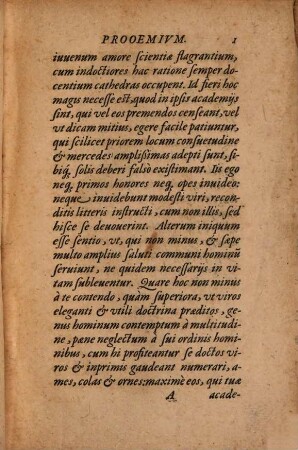 PROOEMIVM. 1
iuuenum amore scientiæ flagrantium,
cum indoctiores hac ratione semper do-
centium cathedras occupent. Id fieri hoc
magis necesse est, quod in ipsis academijs
sint, qui vel eos premendos censeant, vel
vt dicam mitius, egere facile patiuntur,
qui scilicet priorem locum consuetudine
& mercedes amplißimas adepti sunt, si-
biq́; solis deberi falsò existimant. Iis ego
neq; primos honores neq; opes inuideo:
neque inuidebunt modesti viri, recon-
ditis litteris instructi, cum non illis, sed
hisce se deuouerint. Alterum iniquum
esse sentio, vt, qui non minus, & sæpe
multo amplius saluti communi hominũ
seruiunt, ne quidem necessarijs in vi-
tam subleuentur. Quare hoc non minus
à te contendo, quàm superiora, vt viros
eleganti & vtili doctrina præditos, ge-
nus hominum contemptum à multitudi-
ne, pæne neglectum à sui ordinis homi-
nibus, cum hi profiteantur se doctos vi-
ros & inprimis gaudeant numerari, a-
mes, colas & ornes: maximè eos, qui tuæ
A acade-